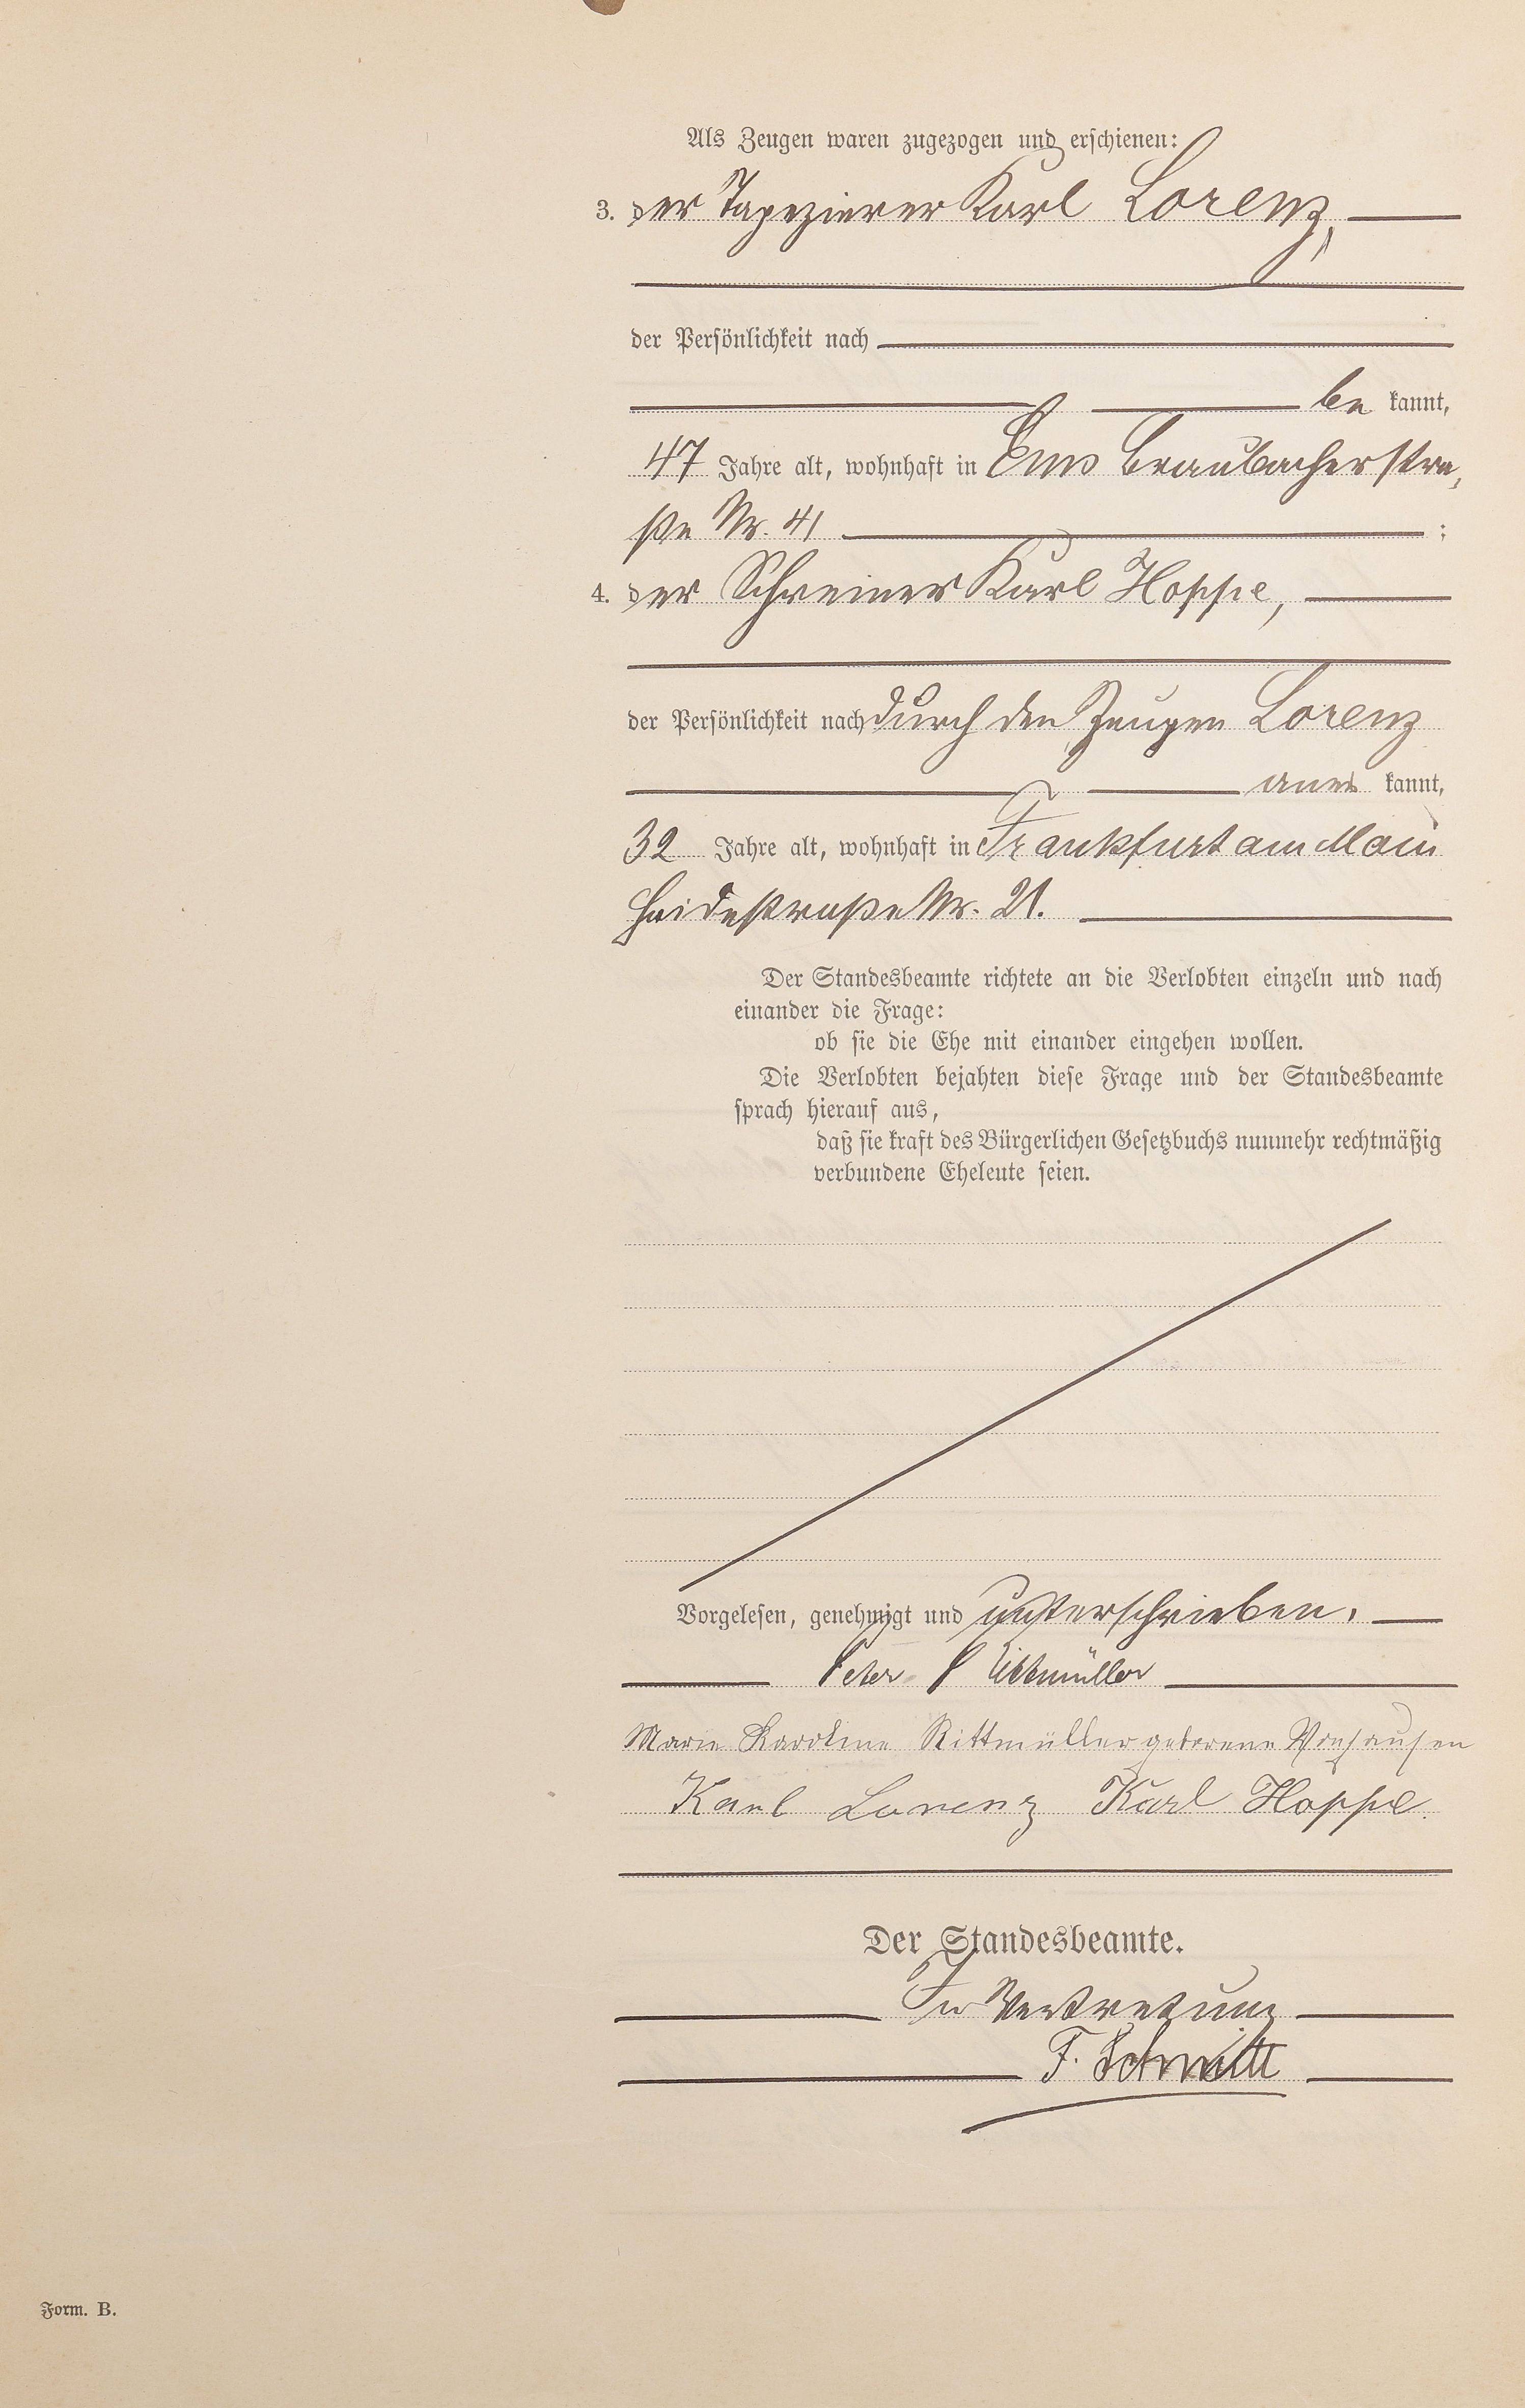 Als Zeugen waren zugezogen und erschienen:
3. der Tapezierer Karl Lorenz,
der Persönlichkeit nach
be kannt,
47 Jahre alt, wohnhaft in Ems Braubacherstra-
ße Nr. 41 ;
4. der Schreiner Karl Hoppe,
der Persönlichkeit nach durch den Zeugen Lorenz
aner kannt,
32 Jahre alt, wohnhaft in Frankfurt am Main
Haidestraße Nr. 21.
Der Standesbeamte richtete an die Verlobten einzeln und nach
einander die Frage:
ob sie die Ehe mit einander eingehen wollen.
Die Verlobten bejahten diese Frage und der Standesbeamte
sprach hierauf aus,
daß sie kraft des Bürgerlichen Gesetzbuchs nunmehr rechtmäßig
verbundene Eheleute seien.
Vorgelesen, genehmigt und unterschrieben.
Peter Rittmüller
Marie Karoline Rittmüller geborene
Karl Lorenz Karl Hoppe.
Der Standesbeamte.
In Vertretung
F. Schmitt
Form. B.